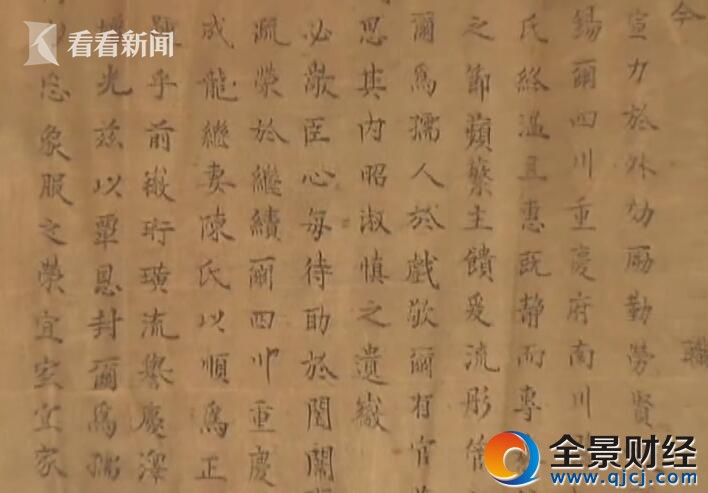 今
職
宣力於外劼勵勤勞賢
錫爾四川重慶府南川
氏終溫且惠既静而專
之節蘋蘩主饋爰流彤管
爾爲孺人於戲敬爾有官
思其內昭淑慎之遺徽
必敬臣心每待助於閨闈
疏榮於繼續爾四川重慶
成龍繼妻陳氏以順爲正
乎前徽珩璜流譽慶澤
光兹以覃恩封爾爲孺
象服之榮宜室宜家
看看新闻
全景财经
www.qjcj.com